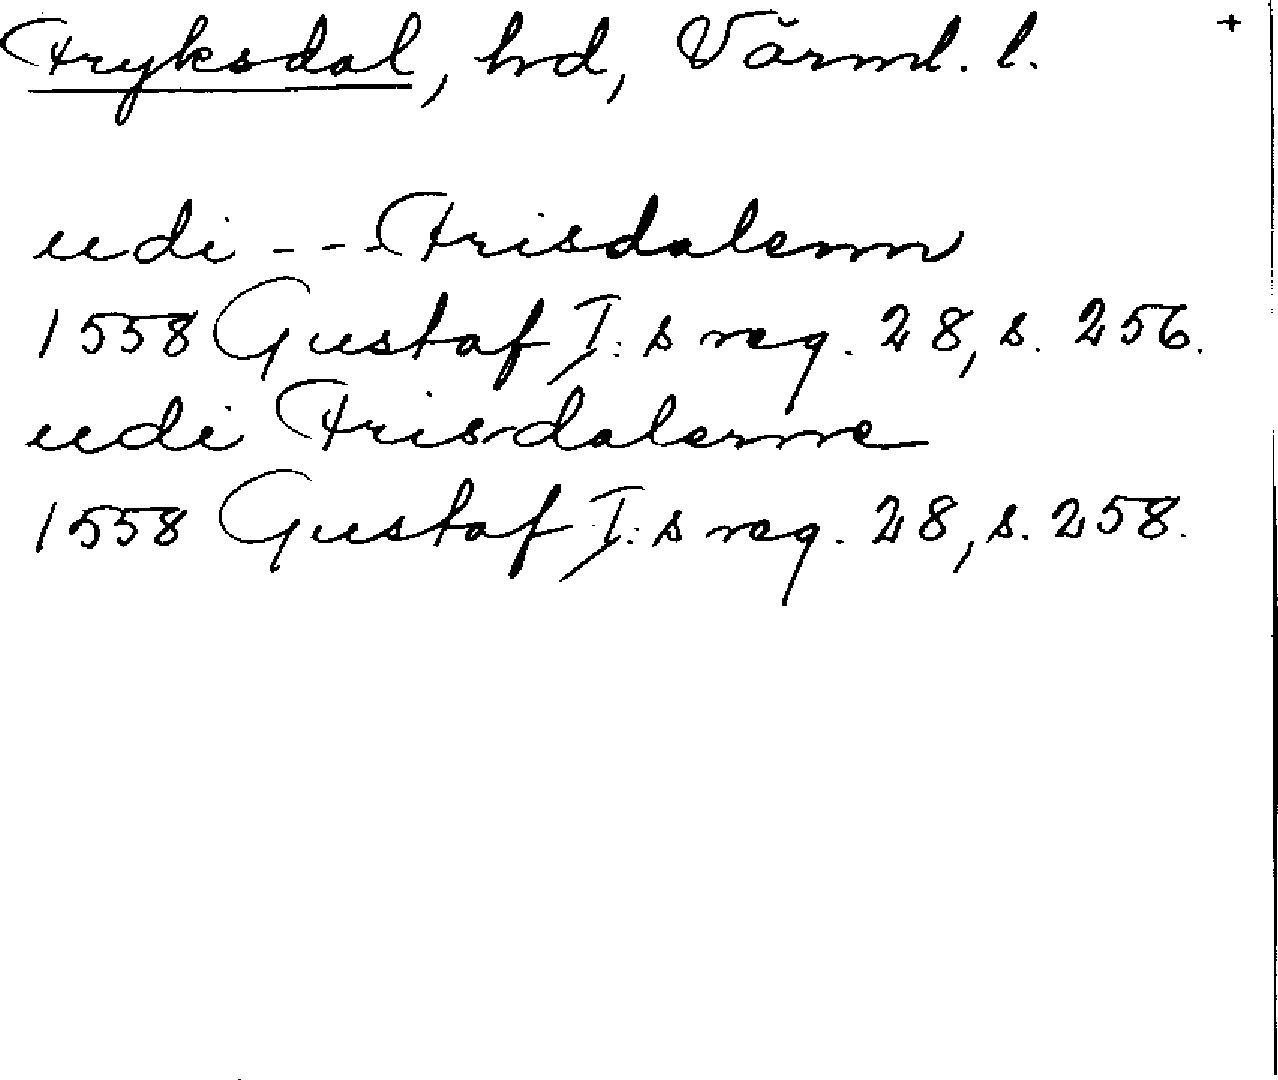 Fryksdal, hd, Värml. l. +
udi --- Frisdalenn
1558 Gustaf I:s reg. 28, s. 256.
udi Frisdalenne
1558 Gustaf I:s reg. 28, s. 258.